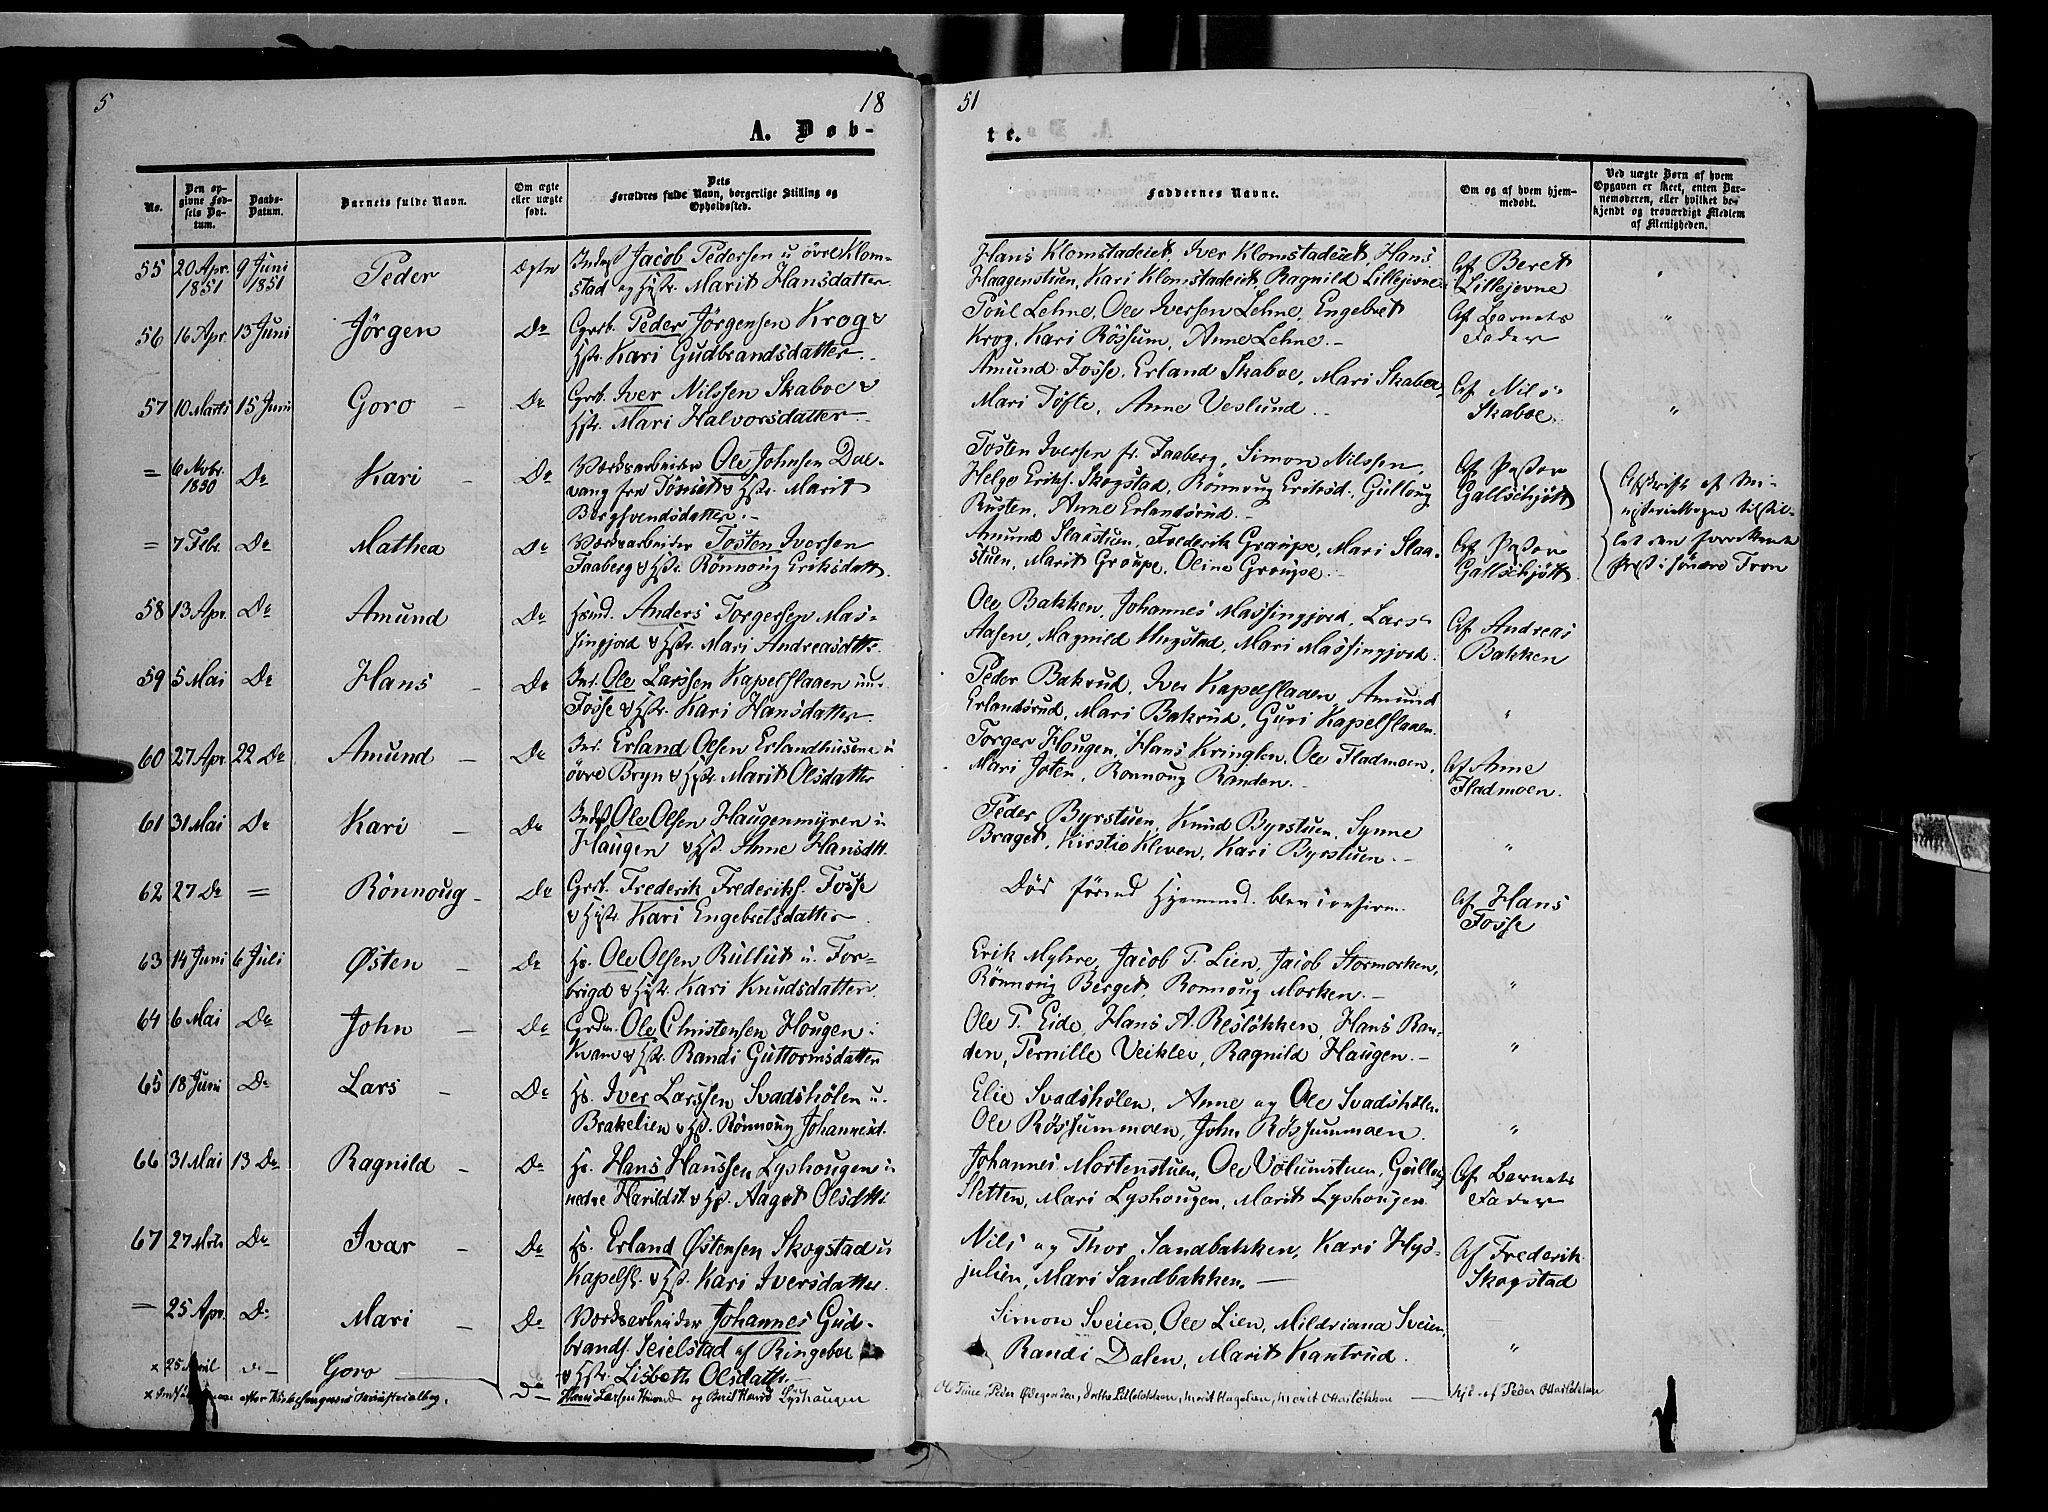 5 18 51
A. Døb- te.
No. | Den opgivne Fødsels Datum. | Daabs-Datum. | Barnets fulde Navn. | Om ægte eller uægte født. | Dets Forældres fulde Navn, borgerlige Stilling og Opholdssted. | Faddernes Navne. | Om og af hvem hjemmedøbt. | Ved uægte Børn af hvem Opgaven er skeet, enten Barnemoderen, eller hvilket bekjendt og troværdigt Medlem af Menigheden.
55 20 Apr. 1851 9 Juni 1851 Peder Ægte Inds Jacob Pedersen u øvre Klom-
stad og Hstr. Marit Hansdatter
Hans Klomstadeiet, Iver Klomstadeiet, Hans
Haagenstuen, Kari Klomstadeiet, Ragnild Lillejevne
Af Beret
Lillejevne "
56 16 Apr. 13 Juni Jörgen Do Grb. Peder Jörgensen Krog &
Hstr. Kari Gudbrandsdatter.
Poul Lehne, Ole Iversen Lehne, Engebret
Krog, Kari Rössum, Anne Lehne.
Af Barnets
Fader "
57 10 Marts 15 Juni Goro - Do Grb. Iver Nilssen Skaboe &
Hstr. Mari Halvorsdatter
Amund Fosse, Erland Skaboe, Mari Skaboe,
Mari Tofte, Anne Veslund.
Af Nils
Skaboe. "
= 6 Nvbr. 1850 Do Kari - Do Værksarbeider Ole Johnsen Dal-
vang fra Tönset & Hstr. Marit
Bergsvendsdatter.
Tosten Iversen fr. Faaberg, Simon Nilssen,
Helge Eriks. Skogstad, Rönnoug Eriksd., Gulloug
Rusten, Anne Erlandsrud.
Af Pastor
Gallschjött
Afskrift af Mi-
nisterialbogen tilstil-
let den
Præst i söndre Fron
= 7 Febr. Do Mathea Do Værksarbeider Tosten Iversen
Faaberg & Hstr. Rönnoug Eriksdatt.
Amund Slaastuen, Frederik Graupe, Mari Slaa-
stuen, Marit Graupe, Oline Graupe.
Af Pastor
Gallschjött
58 13 Apr. Do Amund Do Hsmd. Anders Torgersen Mas-
singjord & Hstr. Mari Andreasdtt.
Ole Bakken, Johannes Massingjord, Lars
Aasen, Magnild Mugstad, Mari Massingjord.
Af Andreas
Bakken
59 5 Mai Do Hans - Do Inr. Ole Larssen Kapelslaaen un.
Fosse & Hstr. Kari Hansdatter
Peder Bakrud, Iver Kapelslaaen, Amund
Erlandsrud, Mari Bakrud, Guri Kapelslaaen. "
60 27 Apr. 22 Do Amund - Do Inr. Erland Olsen Erlandhusene u
övre Bryn & Hstr Marit Olsdatter
Torger Hougen, Hans Kringlen, Ole Fladmoen,
Mari Joten, Ronnoug Randen.
Af Anne
Fladmoen.
61 31 Mai Do Kari - Do Inds Ole Olsen Haugenmyren u
Haugen & Hst. Anne Hansdtt.
Peder Byrstuen, Knud Byrstuen, Synne
Braget, Kirstie Kleven, Kari Byrstuen. "
62 27 Do = Rönnoug - Do Grb. Frederik Frederiks. Fosse
& Hstr. Kari Engebretsdatter
Död förend Hjemmed. blev confirm.
Af Hans
Fosse
63 14 Juni 6 Juli Østen - Do Hs. Ole Olsen Rullut u. For-
brigd & Hstr. Kari Knudsdatter.
Erik Myhre, Jacob P. Lien, Jacob Stormorken,
Rönnoug Berget, Ronnoug Morken. "
64 6 Mai Do John - Do Grdm. Ole Christensen Hougen i
Kvam & Hstr. Randi Guttormsdatter
Ole P. Eide, Hans A. Reslökken, Hans Ran-
den, Pernille Veikle, Ragnild Haugen. "
65 18 Juni Do Lars - Do Hs. Iver Larssen Svadshölen u.
Brakelien & Hst. Rönnoug Johannesd.
Elie Svadshölen, Anne og Ole Svadshölen
Ole Rössummoen, John Rössummoen. "
66 31 Mai 13 Do Ragnild - Do Hs. Hans Hanssen Lyshougen u
nedre Harildst. & Hst. Aaget Olsdtt.
Johannes Mortenstuen, Ole Volumstuen, Gulloug
Sletten, Mari Lyshougen, Marit Lyshougen.
Af Barnets
Fader
67 27 Mrts Do Ivar - Do Hs. Erland Østensen Skogstad u
Kapelsl. & Hst. Kari Iversdatter.
Nils og Thor Sandbakken, Kari Hys-
julien, Mari Sandbakken.
Af Frederik
Skogstad
= 25 Apr. Do Mari - Do Værksarbeider Johannes Gud-
brands. Seielstad af Ringeboe
& Hstr. Lisbeth Olsdatter
Simon Sveien, Ole Lien, Mildriana Sveien,
Randi Dalen, Marit Kantrud. "
× 25 April do Goro do Hans Larsen og Lyshaugen
× efter Klokkerens Ministerialbog.
Ol Tune, Peder Ødegarden, Dorthe Lilleløkken, Marit Hagelien, Marit Ottarløkken hj. af Peder Ottarløkken